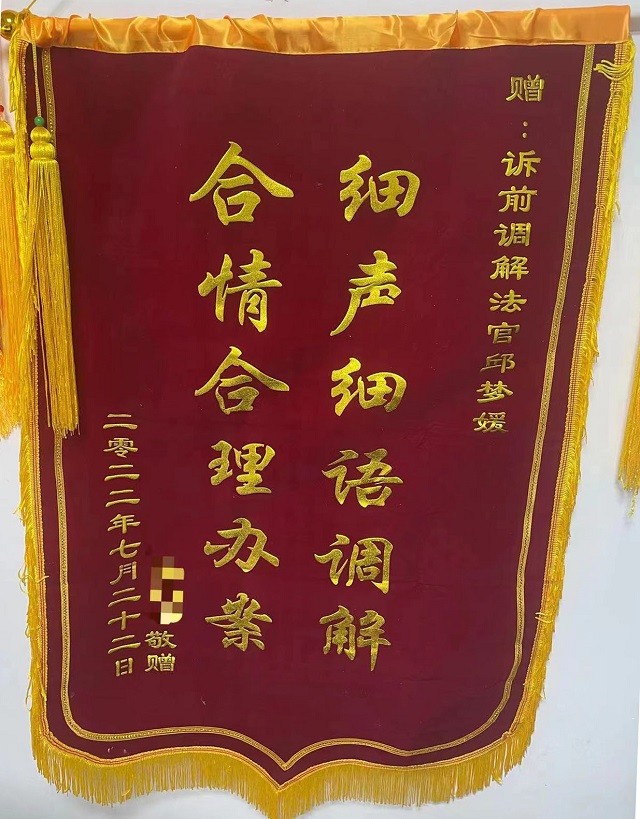 赠：诉前调解法官邱梦媛
细声细语调解
合情合理办案
敬赠
二零二二年七月二十二日